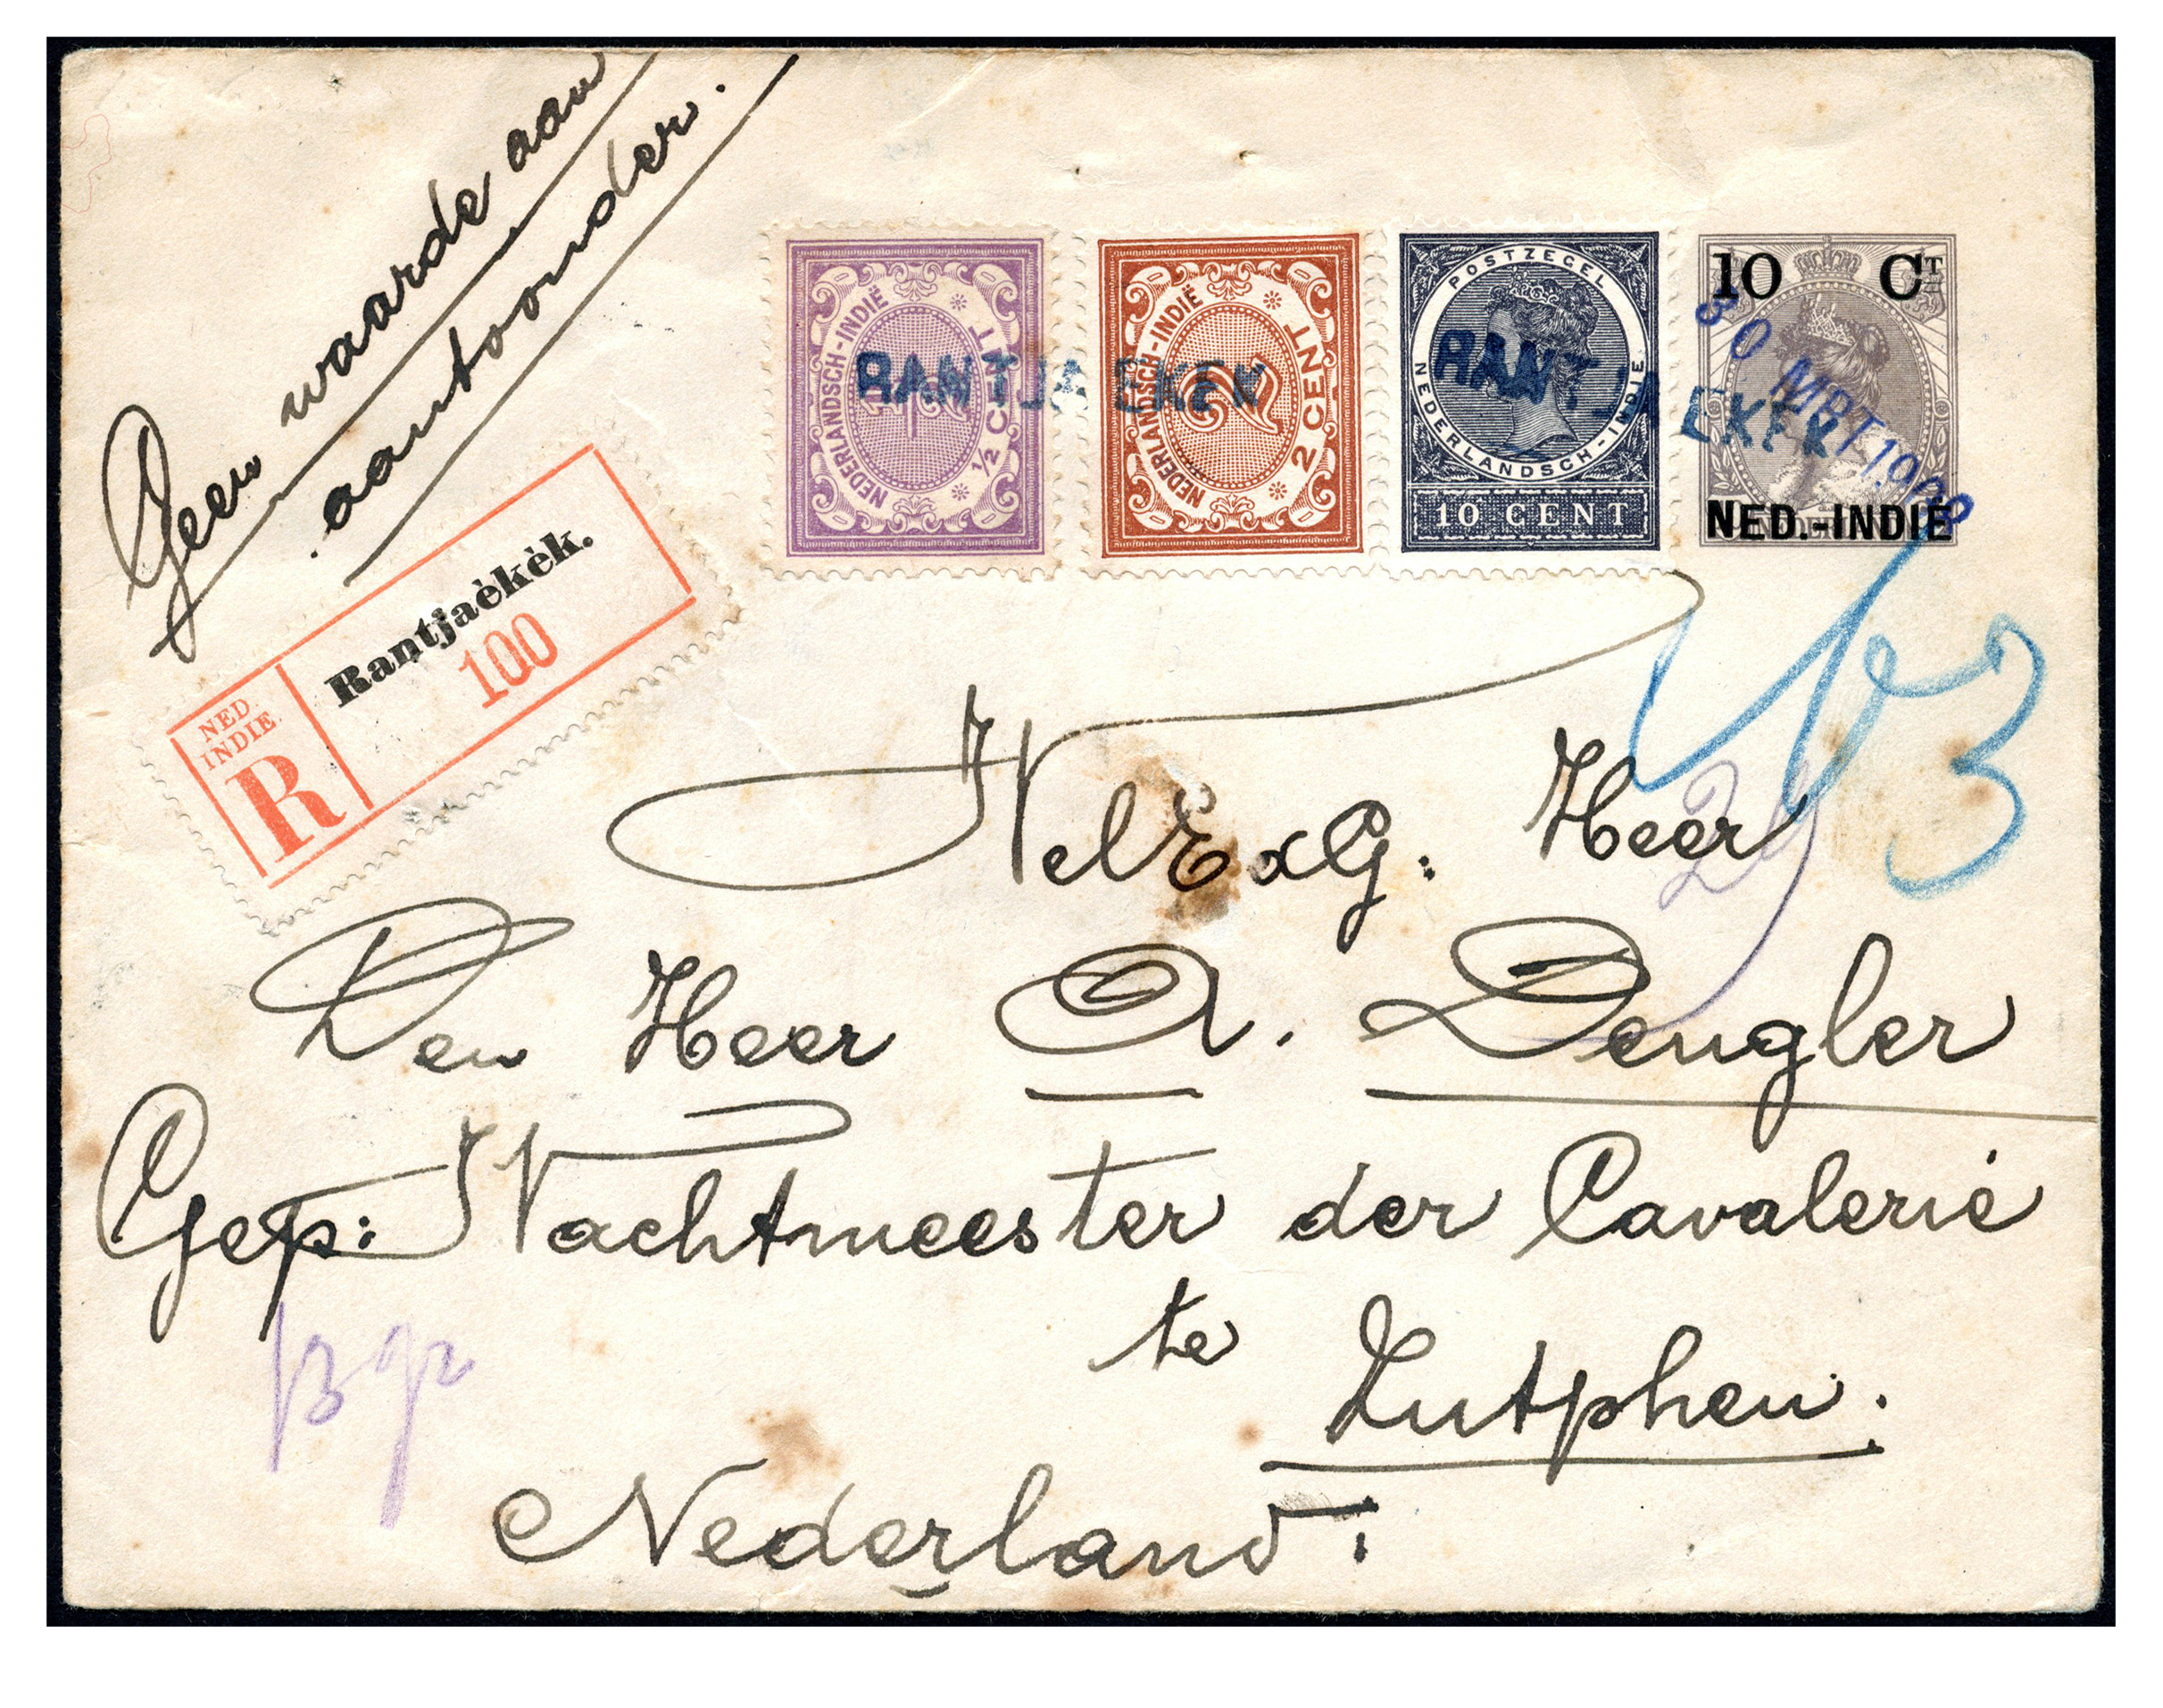 Geen waarde aan
aantoonder.
NED
INDIE.
R
Rantjaèkèk.
100
NEDERLANDSCH-INDIË
1/2
½ CENT
NEDERLANDSCH-INDIË
2
2 CENT
POSTZEGEL
NEDERLANDSCH-INDIE
10 CENT
10 CT
NED.-INDIË
RANTJAEKEK
RANTJAEKEK
30 MRT 1908
WelExG: Heer
Den Heer A. Dengler
Gep: Wachtmeester der Cavalerie
te
Zutphen.
Nederland.